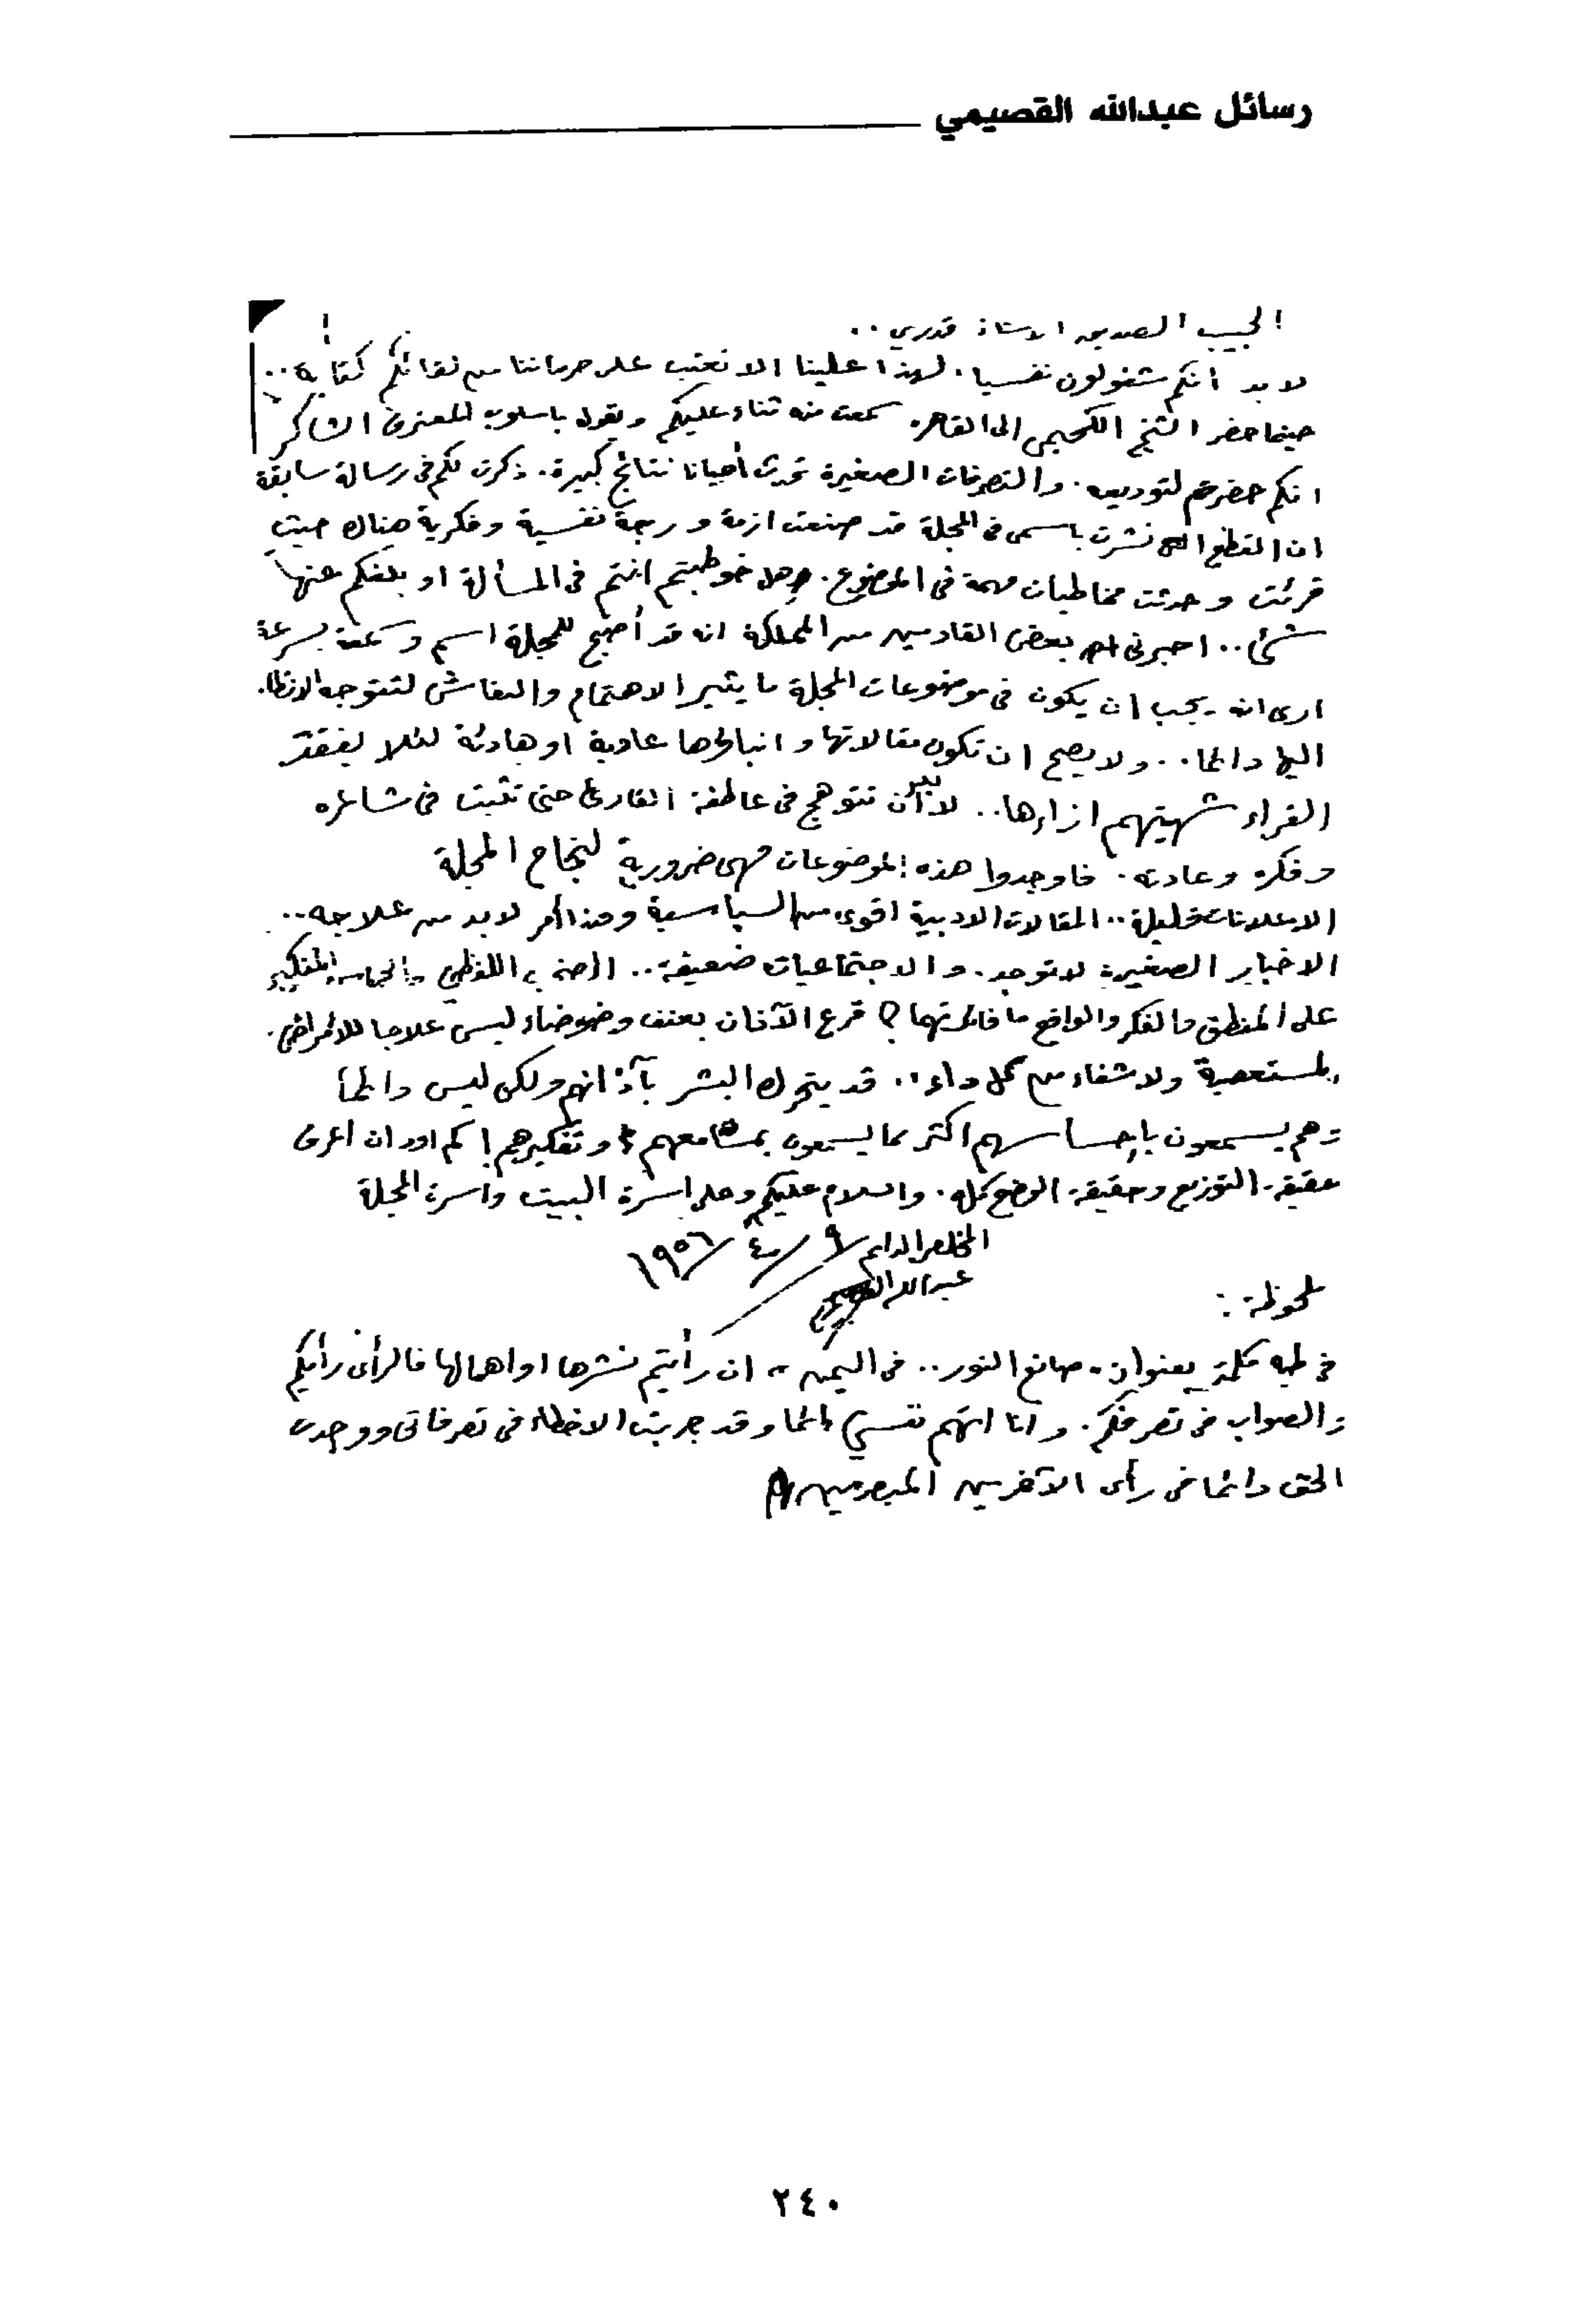 رسائل عبدالله القصيمي
الحبيب الصديق الاستاذ قدري ..
لا بد انكم مشغولون نفسيا . لهذا علينا الا نعتب على حرماننا من لقائكم كتابة ..
حينما حضر الشيخ الكحيمي الى القاهرة سمعت منه ثناء عليكم ويقول باسلوب المعترف الشاكر
انكم حضرتم لتوديعه . والتصرفات الصغيرة تحدث أحيانا نتائج كبيرة . ذكرت لكم في رسالة سابقة
ان القطع التي نشرت باسمي في المجلة قد صنعت ازمة ورجة نفسية وفكرية هناك حيث
قرئت وحدثت مخاطبات مهمة في الموضوع . وهل خوطبتم انتم في المسألة او بلغكم عنها
شئ .. اخبرني بعض القادمين من المملكة انه قد أصبح للمجلة اسم وسمعة بسرعة
ارى انه يجب ان يكون في موضوعات المجلة ما يثير الاهتمام والنقاش لتتوجه الانظار
اليها دائما .. ولا يصح ان تكون مقالاتها و عادية او هادئة لئلا يفقد
القراء شهيتهم ازاءها .. لا بد أن تتوهج في عاطفة القارئ حتى تثبت في مشاعره
وفكره وعادته . فاوجدوا هذه الموضوعات فهي ضرورية لنجاح المجلة
الاعلانات قليلة .. المقالات الادبية اقوى من السياسية وهذا أمر لا بد من علاجه ..
الاخبار الصغيرة لا توجد . والاجتماعيات ضعيفة .. اللفظي
على المنطق والفكر والواقع ما فائدتهما ؟ قرع الآذان بعنف وضوضاء ليس علاجا للامراض
المستعصية ولا شفاء من كل داء .. قد يتحرك البشر بآذانهم ولكن ليس دائما
وهم يسمعون بإحساسهم اكثر مما يسمعون بمسامعهم وتفكيرهم ! كم اود ان اعرف
حقيقة التوزيع وحقيقة الوضع كله . والسلام عليكم وعلى اسرة البيت واسرة المجلة
المخلص الدائم ٩ / ٤ / ١٩٥٦
عبدالله القصيمي
ملحوظة :
في طيه كلمة بعنوان " صانع النور .. في اليمن " ان رأيتم نشرها او اهمالها فالرأي رأيكم
والصواب في تصرفكم . وانا اتهم نفسي دائما وقد جربت الاخطاء في تصرفاتي ووجدت
الحق دائما في رأى الآخرين المبصرين
٢٤٠